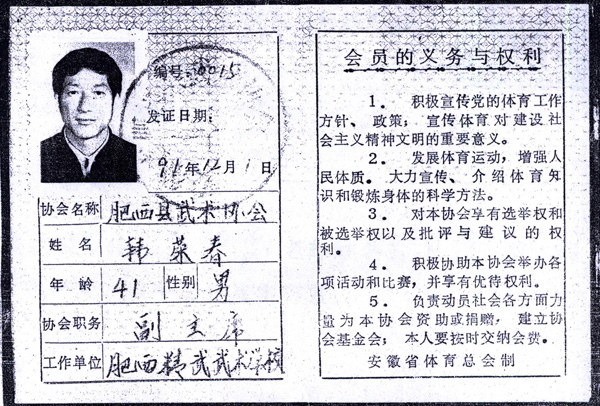 编号:0015
发证日期:
91年12月1日
协会名称 肥西县武术协会
姓名 韩荣春
年龄 41 性别 男
协会职务 副主席
工作单位 肥西精武武术学校
会员的义务与权利
1. 积极宣传党的体育工作
方针、政策;宣传体育对建设社
会主义精神文明的重要意义。
2. 发展体育运动,增强人
民体质。大力宣传、介绍体育知
识和锻炼身体的科学方法。
3. 对本协会享有选举权和
被选举权以及批评与建议的权
利。
4. 积极协助本协会举办各
项活动和比赛,并享有优待权利。
5. 负责动员社会各方面力
量为本协会资助或捐赠,建立协
会基金会;本人要按时交纳会费。
安徽省体育总会制